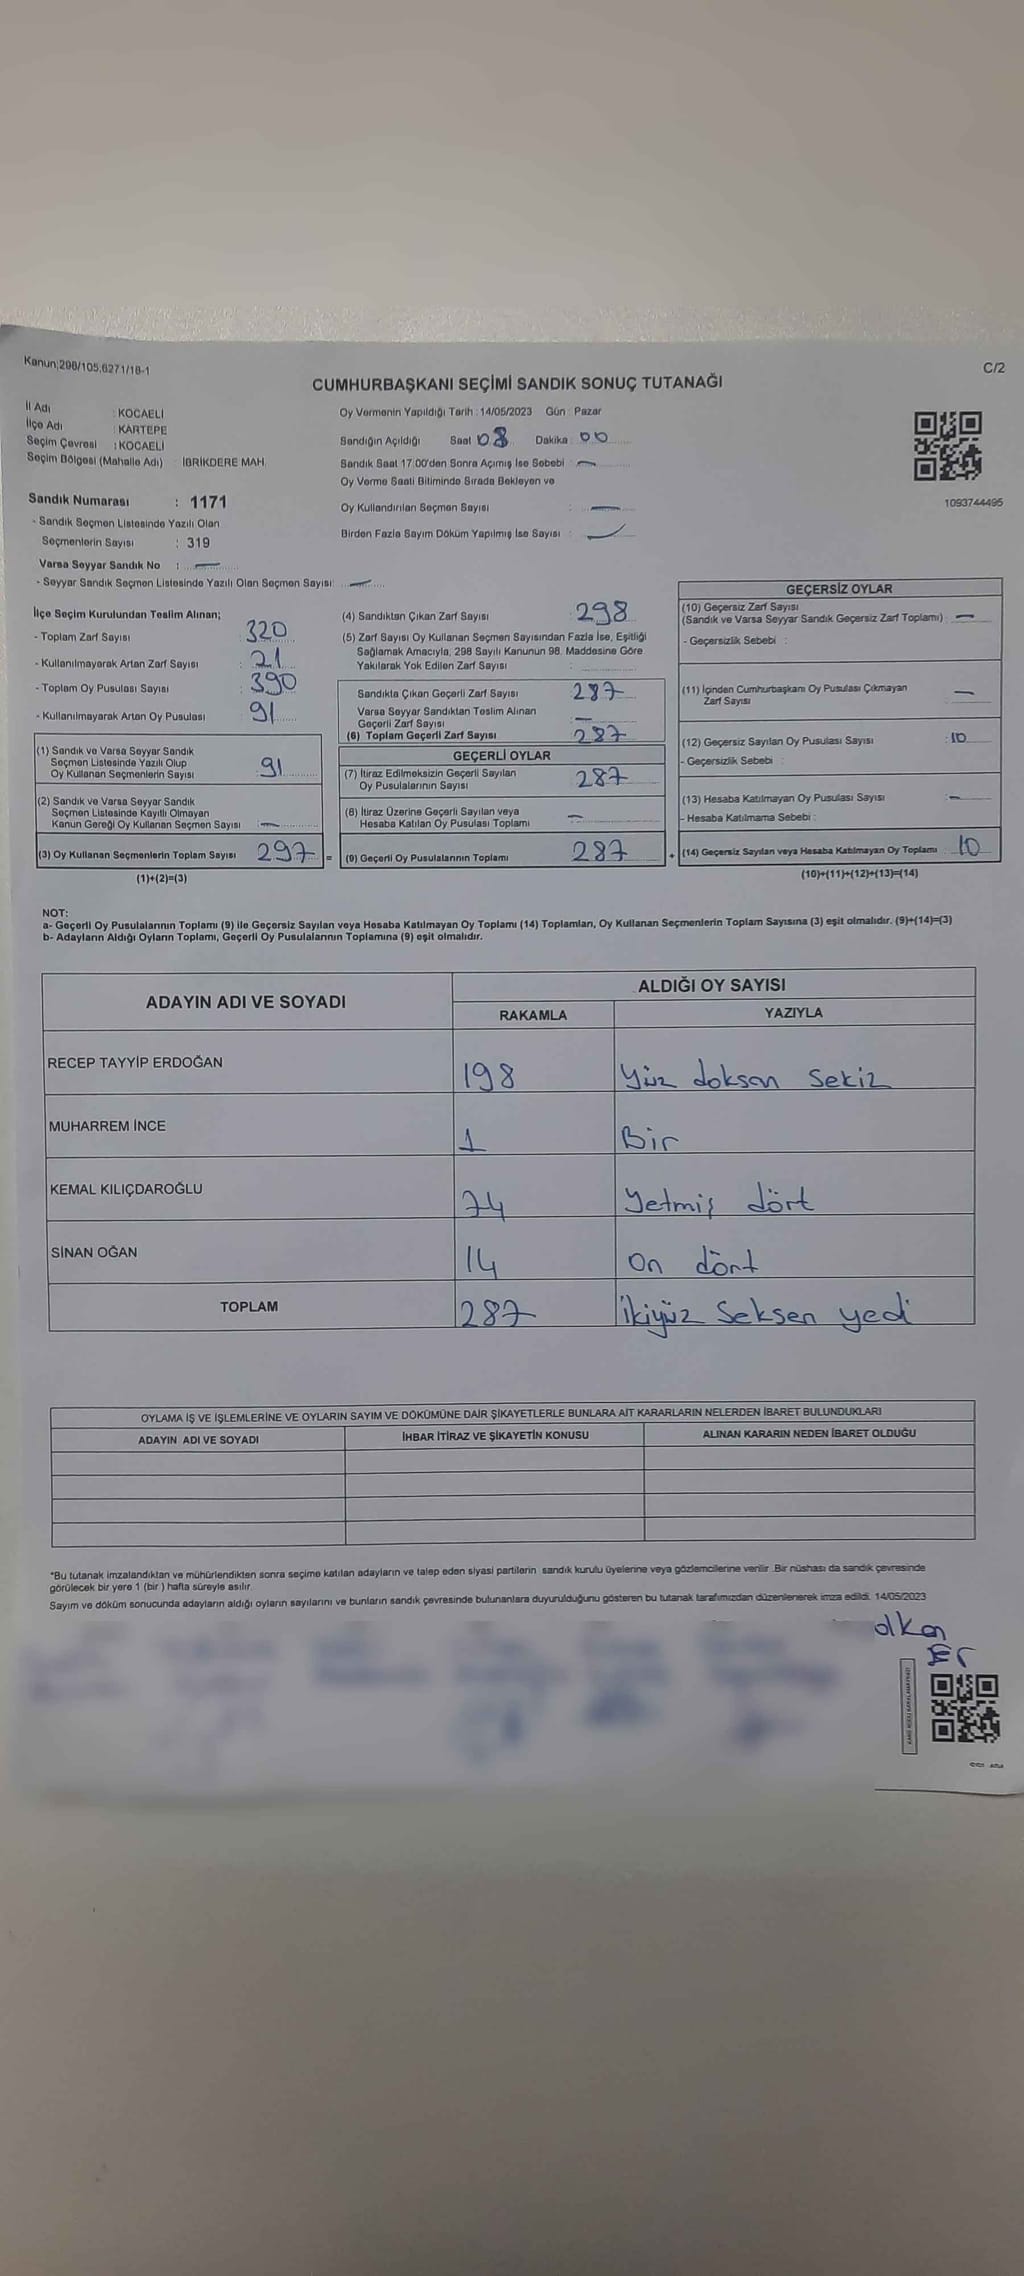 Kanun;298/105,6271/18-1
C/2
CUMHURBAŞKANI SEÇİMİ SANDIK SONUÇ TUTANAĞI
İl Adı : KOCAELİ
İlçe Adı : KARTEPE
Seçim Çevresi : KOCAELİ
Seçim Bölgesi (Mahalle Adı) : İBRİKDERE MAH.
Sandık Numarası : 1171
- Sandık Seçmen Listesinde Yazılı Olan
Seçmenlerin Sayısı : 319
Varsa Seyyar Sandık No : —
- Seyyar Sandık Seçmen Listesinde Yazılı Olan Seçmen Sayısı: —
Oy Vermenin Yapıldığı Tarih : 14/05/2023 Gün : Pazar
Sandığın Açıldığı Saat 08 Dakika : 00
Sandık Saat 17:00'den Sonra Açımış İse Sebebi : —
Oy Verme Saati Bitiminde Sırada Bekleyen ve
Oy Kullandırılan Seçmen Sayısı : —
Birden Fazla Sayım Döküm Yapılmış İse Sayısı : —
1093744495
İlçe Seçim Kurulundan Teslim Alınan;
- Toplam Zarf Sayısı : 320
- Kullanılmayarak Artan Zarf Sayısı : 21
- Toplam Oy Pusulası Sayısı : 390
- Kullanılmayarak Artan Oy Pusulası : 91
(1) Sandık ve Varsa Seyyar Sandık
Seçmen Listesinde Yazılı Olup
Oy Kullanan Seçmenlerin Sayısı : 91
(2) Sandık ve Varsa Seyyar Sandık
Seçmen Listesinde Kayıtlı Olmayan
Kanun Gereği Oy Kullanan Seçmen Sayısı : —
(3) Oy Kullanan Seçmenlerin Toplam Sayısı : 297 =
(1)+(2)=(3)
(4) Sandıktan Çıkan Zarf Sayısı : 298
(5) Zarf Sayısı Oy Kullanan Seçmen Sayısından Fazla İse, Eşitliği
Sağlamak Amacıyla, 298 Sayılı Kanunun 98. Maddesine Göre
Yakılarak Yok Edilen Zarf Sayısı :
Sandıkta Çıkan Geçerli Zarf Sayısı : 287
Varsa Seyyar Sandıktan Teslim Alınan
Geçerli Zarf Sayısı : —
(6) Toplam Geçerli Zarf Sayısı : 287
GEÇERLİ OYLAR
(7) İtiraz Edilmeksizin Geçerli Sayılan
Oy Pusulalarının Sayısı : 287
(8) İtiraz Üzerine Geçerli Sayılan veya
Hesaba Katılan Oy Pusulası Toplamı : —
(9) Geçerli Oy Pusulalarının Toplamı : 287 +
GEÇERSİZ OYLAR
(10) Geçersiz Zarf Sayısı
(Sandık ve Varsa Seyyar Sandık Geçersiz Zarf Toplamı) : —
- Geçersizlik Sebebi :
(11) İçinden Cumhurbaşkanı Oy Pusulası Çıkmayan
Zarf Sayısı : —
(12) Geçersiz Sayılan Oy Pusulası Sayısı : 10
- Geçersizlik Sebebi :
(13) Hesaba Katılmayan Oy Pusulası Sayısı : —
- Hesaba Katılmama Sebebi :
(14) Geçersiz Sayılan veya Hesaba Katılmayan Oy Toplamı : 10
(10)+(11)+(12)+(13)=(14)
NOT:
a- Geçerli Oy Pusulalarının Toplamı (9) ile Geçersiz Sayılan veya Hesaba Katılmayan Oy Toplamı (14) Toplamları, Oy Kullanan Seçmenlerin Toplam Sayısına (3) eşit olmalıdır. (9)+(14)=(3)
b- Adayların Aldığı Oyların Toplamı, Geçerli Oy Pusulalarının Toplamına (9) eşit olmalıdır.
ADAYIN ADI VE SOYADI
ALDIĞI OY SAYISI
RAKAMLA YAZIYLA
RECEP TAYYİP ERDOĞAN 198 Yüz doksan sekiz
MUHARREM İNCE 1 Bir
KEMAL KILIÇDAROĞLU 74 Yetmiş dört
SİNAN OĞAN 14 On dört
TOPLAM 287 İkiyüz Seksen yedi
OYLAMA İŞ VE İŞLEMLERİNE VE OYLARIN SAYIM VE DÖKÜMÜNE DAİR ŞİKAYETLERLE BUNLARA AİT KARARLARIN NELERDEN İBARET BULUNDUKLARI
ADAYIN ADI VE SOYADI İHBAR İTİRAZ VE ŞİKAYETİN KONUSU ALINAN KARARIN NEDEN İBARET OLDUĞU
*Bu tutanak imzalandıktan ve mühürlendikten sonra seçime katılan adayların ve talep eden siyasi partilerin sandık kurulu üyelerine veya gözlemcilerine verilir. Bir nüshası da sandık çevresinde
görülecek bir yere 1 (bir ) hafta süreyle asılır.
Sayım ve döküm sonucunda adayların aldığı oyların sayılarını ve bunların sandık çevresinde bulunanlara duyurulduğunu gösteren bu tutanak tarafımızdan düzenlenerek imza edildi. 14/05/2023
olkan
Er